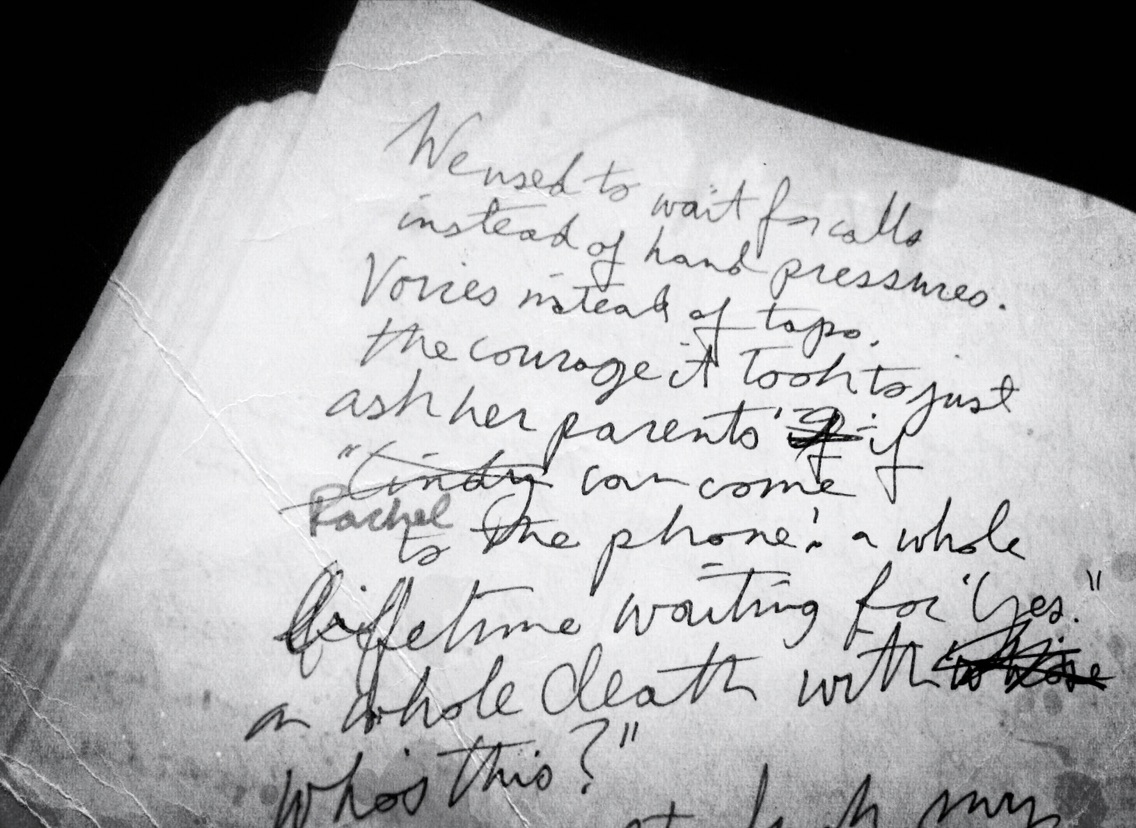 We used to wait for calls
instead of hand pressures.
Voices instead of taps.
the courage it took to just
ask her parents if
"Cindy can come
Rachel
to the phone." a whole
lifetime waiting for "yes."
a whole death with
who's this?"
my